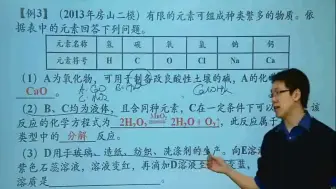 【例3】（2013年房山二模）有限的元素可组成种类繁多的物质。依
据表中的元素回答下列问题。
元素名称 氢 碳 氧 氯 钠 钙
元素符号 H C O Cl Na Ca
（1）A为氧化物，可用于制备改良酸性土壤的碱，A的化
CaO 。
（2）B、C均为液体，且含同种元素，C在一定条件下可
反应的化学方程式为 2H₂O₂ MnO₂ 2H₂O + O₂↑ ，此反应属于
类型中的 分解 反应。
（3）D用于玻璃、造纸、纺织、洗涤剂的生产。向E溶
紫色石蕊溶液，溶液变红，再滴加D溶液至 变蓝，
溶质是